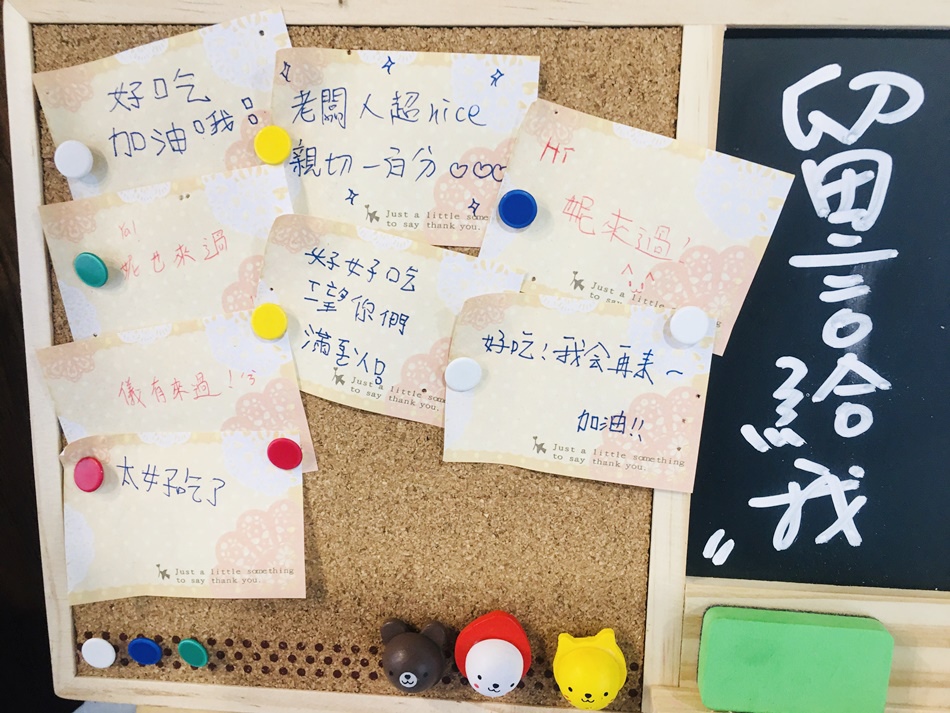 好吃
加油哦!
老闆人超nice
親切一百分♡♡♡
Just a little some
to say thank you.
Hi
妮來過!
Just a little
to say
Hi!
妮也來過
好好吃
Just a little som
to say thank you.
好吃!我会再来~
加油!!
Just a little something
to say thank you.
儀有來過!
太好吃了
Just a little something
to say thank you.
留言給我